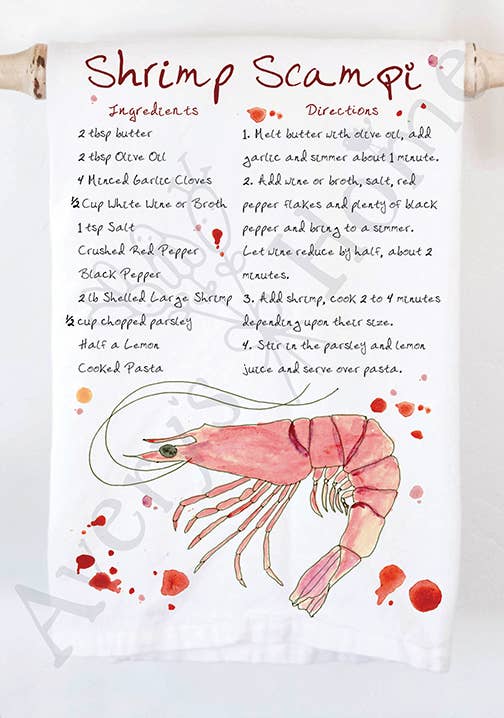 Shrimp Scampi
Ingredients
2 tbsp butter
2 tbsp Olive Oil
4 Minced Garlic Cloves
½ Cup White Wine or Broth
1 tsp Salt
Crushed Red Pepper
Black Pepper
2 lb Shelled Large Shrimp
½ cup chopped parsley
Half a Lemon
Cooked Pasta
Directions
1. Melt butter with olive oil, add
garlic and simmer about 1 minute.
2. Add wine or broth, salt, red
pepper flakes and plenty of black
pepper and bring to a simmer.
Let wine reduce by half, about 2
minutes.
3. Add shrimp, cook 2 to 4 minutes
depending upon their size.
4. Stir in the parsley and lemon
juice and serve over pasta.
Avery's Home